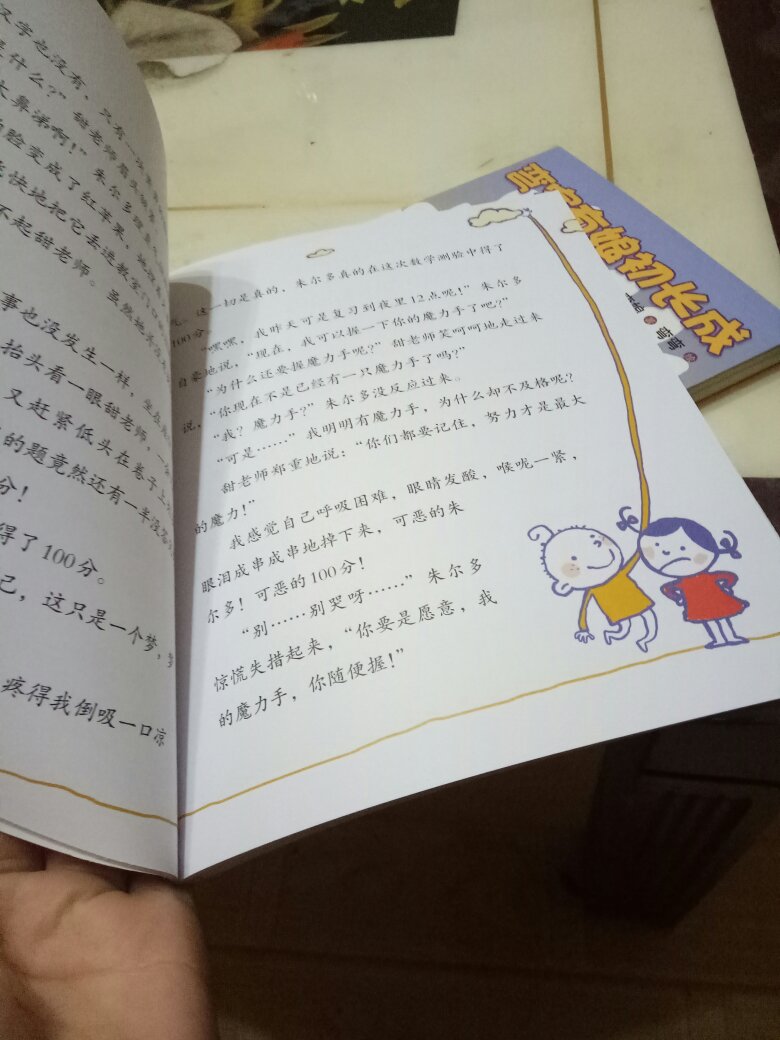 汉字也没有，只有一
什么？”甜老师眉头
大鼻涕啊！”朱尔多
脸变成了红苹果，她
快地把它丢进教室门口
不起甜老师。虽然她
事也没发生一样，坐在
抬头看一眼甜老师，一
又赶紧低头在卷子上
的题竟然还有一半没
分！
得了100分。
己，这只是一个梦，
疼得我倒吸一口凉
气。这一切是真的，朱尔多真的在这次数学测验中得了
100分。
“嘿嘿，我昨天可是复习到夜里12点呢！”朱尔多
自豪地说，“现在，我可以握一下你的魔力手了吧？”
“为什么还要握魔力手呢？”甜老师笑呵呵地走过来
说，“你现在不是已经有一只魔力手了吗？”
“我？魔力手？”朱尔多没反应过来。
“可是……”我明明有魔力手，为什么却不及格呢？
甜老师郑重地说：“你们都要记住，努力才是最大
的魔力！”
我感觉自己呼吸困难，眼睛发酸，喉咙一紧，
眼泪成串成串地掉下来，可恶的朱
尔多！可恶的100分！
“别……别哭呀……”朱尔多
惊慌失措起来，“你要是愿意，我
的魔力手，你随便握！”
弯家有娘初长成
弯弯